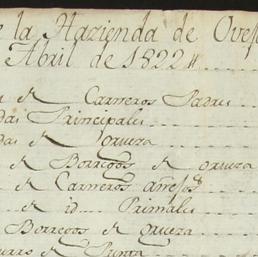 la Hazienda de Ovej
Abril de 1822
de Carneros Padres
das Principales
das de Dorveza
de Borregos de Dorveza
de Carneros añejos
de id... Primales
Borregos de Dorveza
de Punta